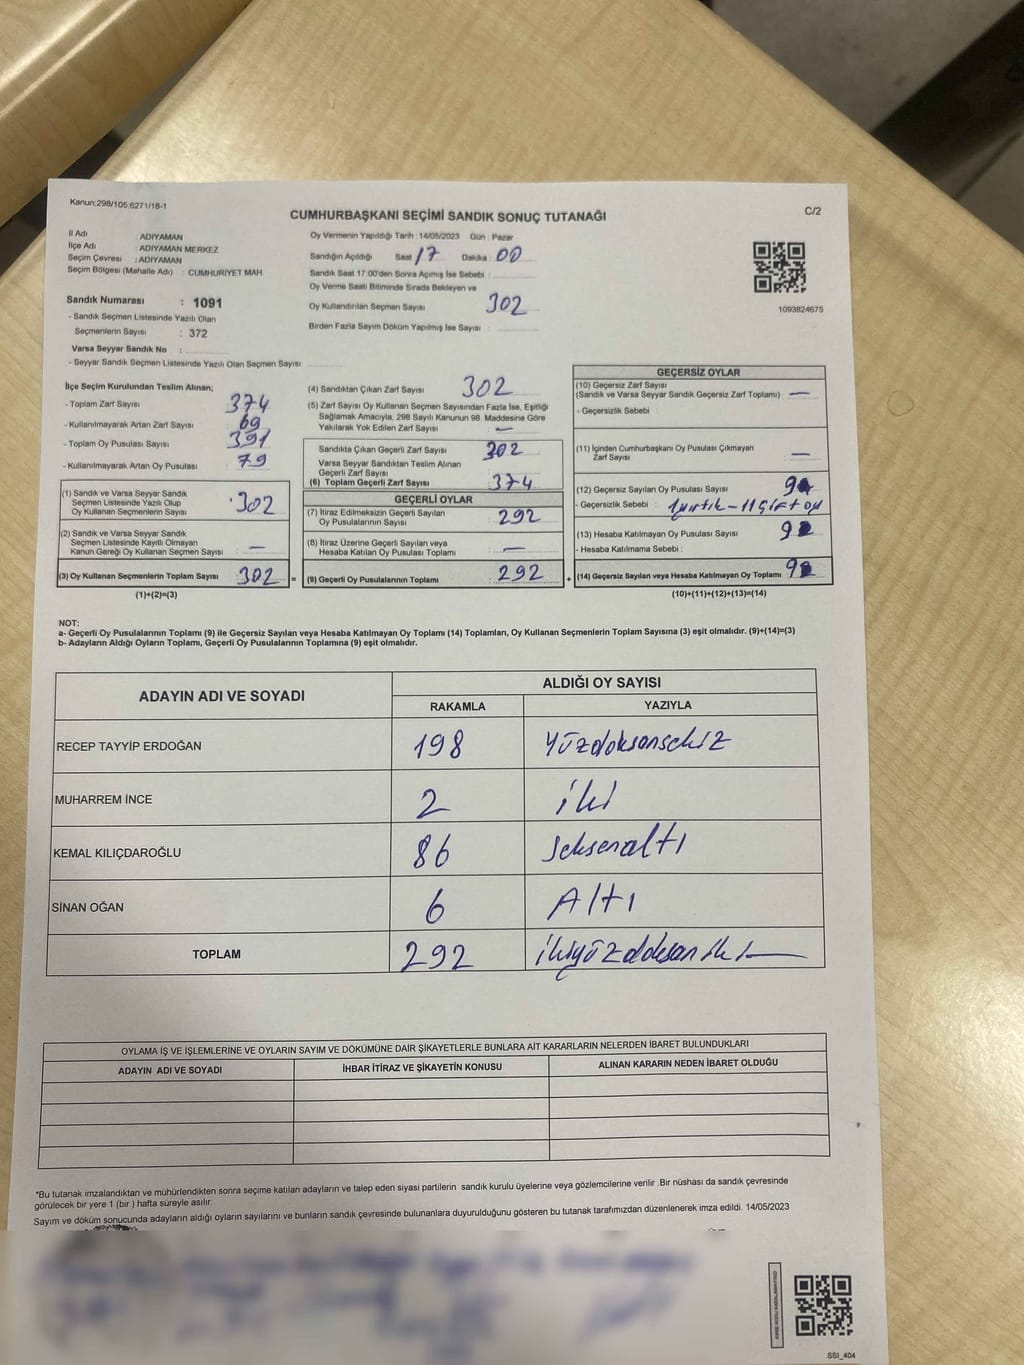 Kanun:298/105;6271/18-1
CUMHURBAŞKANI SEÇİMİ SANDIK SONUÇ TUTANAĞI
C/2
İl Adı : ADIYAMAN
İlçe Adı : ADIYAMAN MERKEZ
Seçim Çevresi : ADIYAMAN
Seçim Bölgesi (Mahalle Adı) : CUMHURİYET MAH.
Sandık Numarası : 1091
- Sandık Seçmen Listesinde Yazılı Olan
Seçmenlerin Sayısı : 372
Varsa Seyyar Sandık No :
- Seyyar Sandık Seçmen Listesinde Yazılı Olan Seçmen Sayısı :
Oy Vermenin Yapıldığı Tarih : 14/05/2023 Gün : Pazar
Sandığın Açıldığı Saat 17 Dakika : 00
Sandık Saat 17:00'den Sonra Açımış İse Sebebi :
Oy Verme Saati Bitiminde Sırada Bekleyen ve
Oy Kullandırılan Seçmen Sayısı 302
Birden Fazla Sayım Döküm Yapılmış İse Sayısı :
1093824675
İlçe Seçim Kurulundan Teslim Alınan;
- Toplam Zarf Sayısı 374
- Kullanılmayarak Artan Zarf Sayısı : 69
- Toplam Oy Pusulası Sayısı 391
- Kullanılmayarak Artan Oy Pusulası : 79
(1) Sandık ve Varsa Seyyar Sandık
Seçmen Listesinde Yazılı Olup
Oy Kullanan Seçmenlerin Sayısı : 302
(2) Sandık ve Varsa Seyyar Sandık
Seçmen Listesinde Kayıtlı Olmayan
Kanun Gereği Oy Kullanan Seçmen Sayısı : —
(3) Oy Kullanan Seçmenlerin Toplam Sayısı : 302 =
(1)+(2)=(3)
(4) Sandıktan Çıkan Zarf Sayısı : 302
(5) Zarf Sayısı Oy Kullanan Seçmen Sayısından Fazla İse, Eşitliği
Sağlamak Amacıyla, 298 Sayılı Kanunun 98. Maddesine Göre
Yakılarak Yok Edilen Zarf Sayısı : —
Sandıkta Çıkan Geçerli Zarf Sayısı 302
Varsa Seyyar Sandıktan Teslim Alınan
Geçerli Zarf Sayısı
(6) Toplam Geçerli Zarf Sayısı : 374
GEÇERLİ OYLAR
(7) İtiraz Edilmeksizin Geçerli Sayılan
Oy Pusulalarının Sayısı : 292
(8) İtiraz Üzerine Geçerli Sayılan veya
Hesaba Katılan Oy Pusulası Toplamı : —
(9) Geçerli Oy Pusulalarının Toplamı : 292 +
GEÇERSİZ OYLAR
(10) Geçersiz Zarf Sayısı
(Sandık ve Varsa Seyyar Sandık Geçersiz Zarf Toplamı) : —
- Geçersizlik Sebebi :
(11) İçinden Cumhurbaşkanı Oy Pusulası Çıkmayan
Zarf Sayısı : —
(12) Geçersiz Sayılan Oy Pusulası Sayısı :
- Geçersizlik Sebebi :
(13) Hesaba Katılmayan Oy Pusulası Sayısı :
- Hesaba Katılmama Sebebi :
(14) Geçersiz Sayılan veya Hesaba Katılmayan Oy Toplamı :
(10)+(11)+(12)+(13)=(14)
NOT:
a- Geçerli Oy Pusulalarının Toplamı (9) ile Geçersiz Sayılan veya Hesaba Katılmayan Oy Toplamı (14) Toplamları, Oy Kullanan Seçmenlerin Toplam Sayısına (3) eşit olmalıdır. (9)+(14)=(3)
b- Adayların Aldığı Oyların Toplamı, Geçerli Oy Pusulalarının Toplamına (9) eşit olmalıdır.
ADAYIN ADI VE SOYADI
ALDIĞI OY SAYISI
RAKAMLA YAZIYLA
RECEP TAYYİP ERDOĞAN 198 Yüzdoksansekiz
MUHARREM İNCE 2 iki
KEMAL KILIÇDAROĞLU 86 Seksenaltı
SİNAN OĞAN 6 Altı
TOPLAM 292 ikiyüzdoksaniki
OYLAMA İŞ VE İŞLEMLERİNE VE OYLARIN SAYIM VE DÖKÜMÜNE DAİR ŞİKAYETLERLE BUNLARA AİT KARARLARIN NELERDEN İBARET BULUNDUKLARI
ADAYIN ADI VE SOYADI İHBAR İTİRAZ VE ŞİKAYETİN KONUSU ALINAN KARARIN NEDEN İBARET OLDUĞU
*Bu tutanak imzalandıktan ve mühürlendikten sonra seçime katılan adayların ve talep eden siyasi partilerin sandık kurulu üyelerine veya gözlemcilerine verilir .Bir nüshası da sandık çevresinde
görülecek bir yere 1 (bir ) hafta süreyle asılır.
Sayım ve döküm sonucunda adayların aldığı oyların sayılarını ve bunların sandık çevresinde bulunanlara duyurulduğunu gösteren bu tutanak tarafımızdan düzenlenerek imza edildi. 14/05/2023
SSI_404